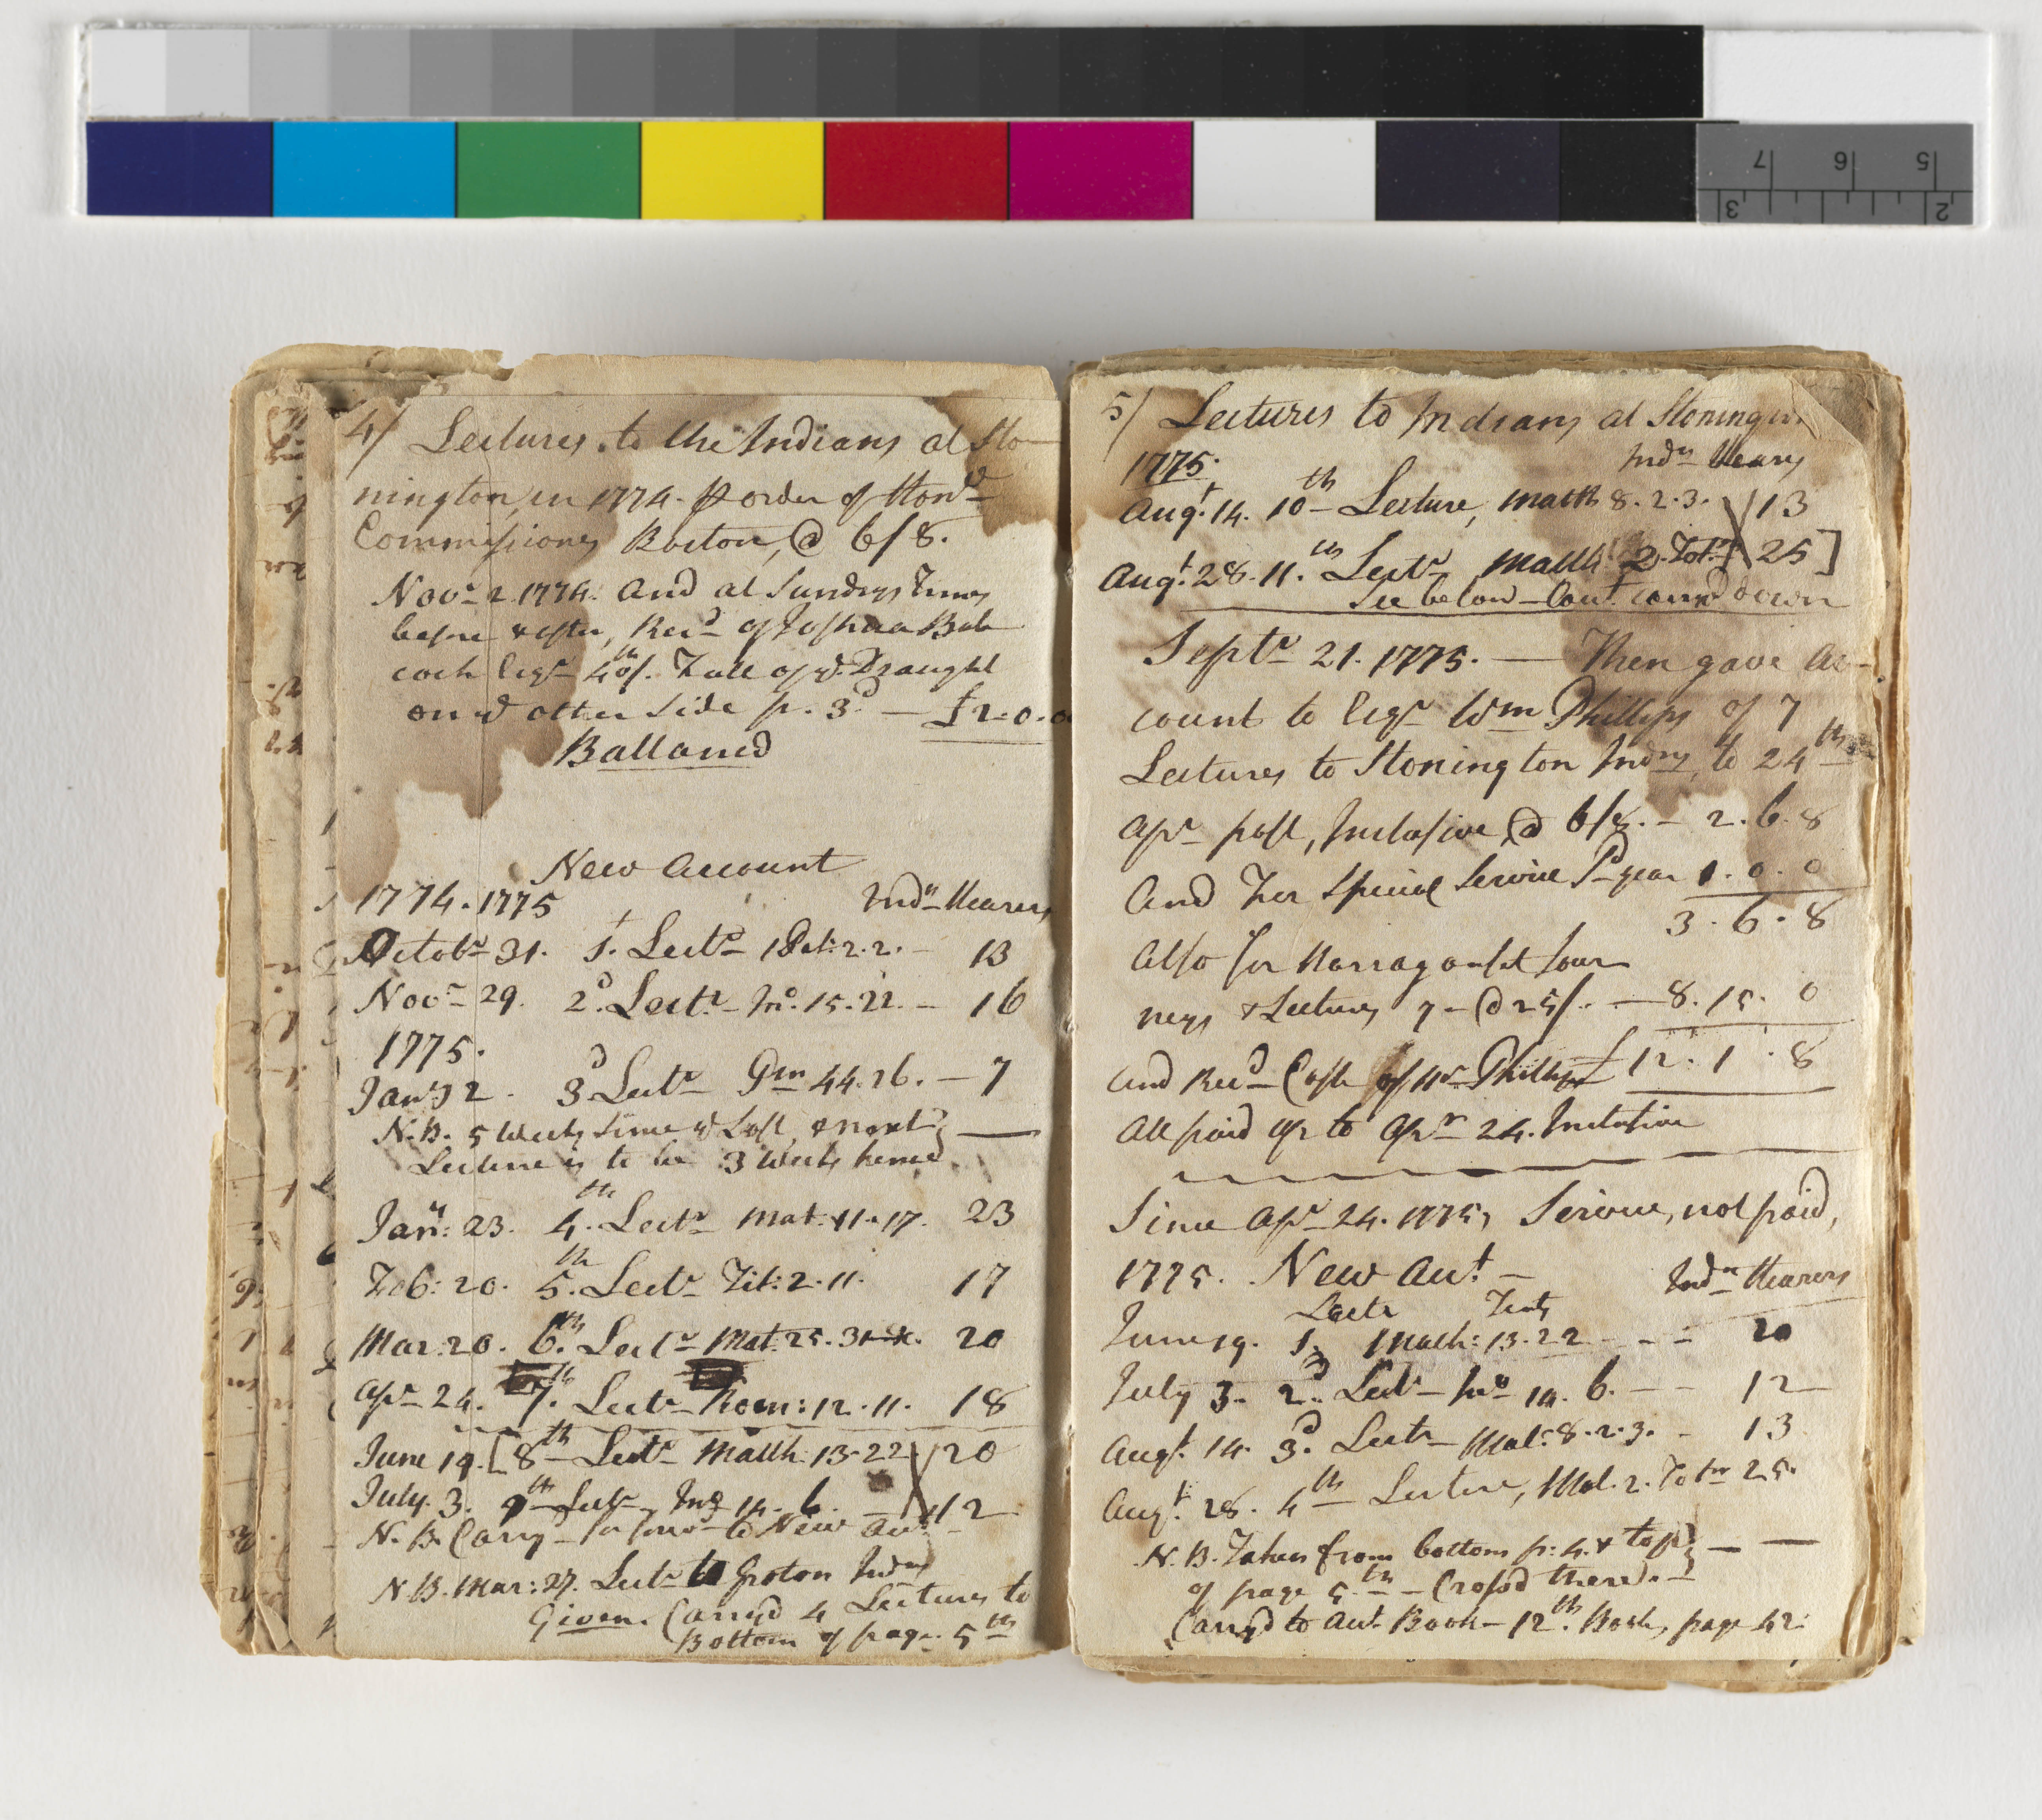 4/ Lectures to the Indians at Sto-
nington, in 1774. ⅌ order of Honᵈ
Commissioners Boston, @ 6/8.
Novʳ 2. 1774. And at Sundry Times
before & after, Recᵈ of Joshua Bab
cock Esqʳ 40/. Full of yᵉ Draught
on yᵉ other side p. 3ᵈ — £2.0.0
Ballanced
New Account
1774. 1775 Indⁿ Hearers
Octobʳ 31. 1. Lectʳ 1 Pet: 2. 2. — 13
Novʳ 29. 2ᵈ. Lectʳ Jnº. 15. 22. — 16
1775.
Janʸ 2. 3ᵈ Lectʳ Gen 44. 26. — 7
N.B. 5 Weeks since yᵉ Last, & next
Lecture is to be 3 Weeks hence
Janʸ: 23. 4th. Lectʳ Mat: 11. 17. 23
Feb: 20. 5th. Lectʳ Tit: 2. 11. 17
Mar: 20. 6th. Lectʳ Mat: 25. 31 &c. 20
Apʳ 24. 7th. Lectʳ Rom: 12. 11. 18
June 19. [8th Lectʳ Matth. 13. 22 20
July. 3. 9th Lectʳ Jnº 14. 6. — 12
N.B. Carryᵈ to New Acct
N.B. Mar: 27. Lectʳ to Groton Indⁿˢ
Given. Carryd 4 Lectures to
Bottom of page 5th
5/ Lectures to Indians at Stonington
1775. Indⁿ Hearers
Augᵗ. 14. 10th Lecture, Matth 8. 2. 3. 13
Augᵗ. 28. 11th. Lectʳ Matth 2. 25]
See below — Acct carrᵈ down
Septʳ 21. 1775. — Then gave Ac-
count to Esqʳ Wm Phillips of 7
Lectures to Stonington Indⁿˢ, to 24th
Apʳ past, Inclusive @ 6/8. — 2. 6. 8
And For Special Service ⅌ year 1. 0. 0
3. 6. 8
Also for Narraganset Jour
neys & Lectures 7 — @ 25/. — 8. 15. 0
and Recᵈ Cash of Mʳ Phillips £12. 1. 8
All paid up to Apʳ 24. Inclusive
Since Apʳ 24. 1775, Service, not paid,
1775. New Acct. — Indⁿ Hearers
Lectr Texts
June 19. 1. Matth: 13. 22 - - - 20
July 3. 2ᵈ. Lectʳ Jnº 14. 6. — - 12
Augᵗ. 14. 3ᵈ. Lectʳ Mat: 8. 2. 3. - 13
Augᵗ. 28. 4th Lecture, Mat. 2. 25.
N.B. Taken from bottom p: 4. & top
of page 5th — Crossd there. —
Carryd to Acct. Book — 12th. Book, page 42.